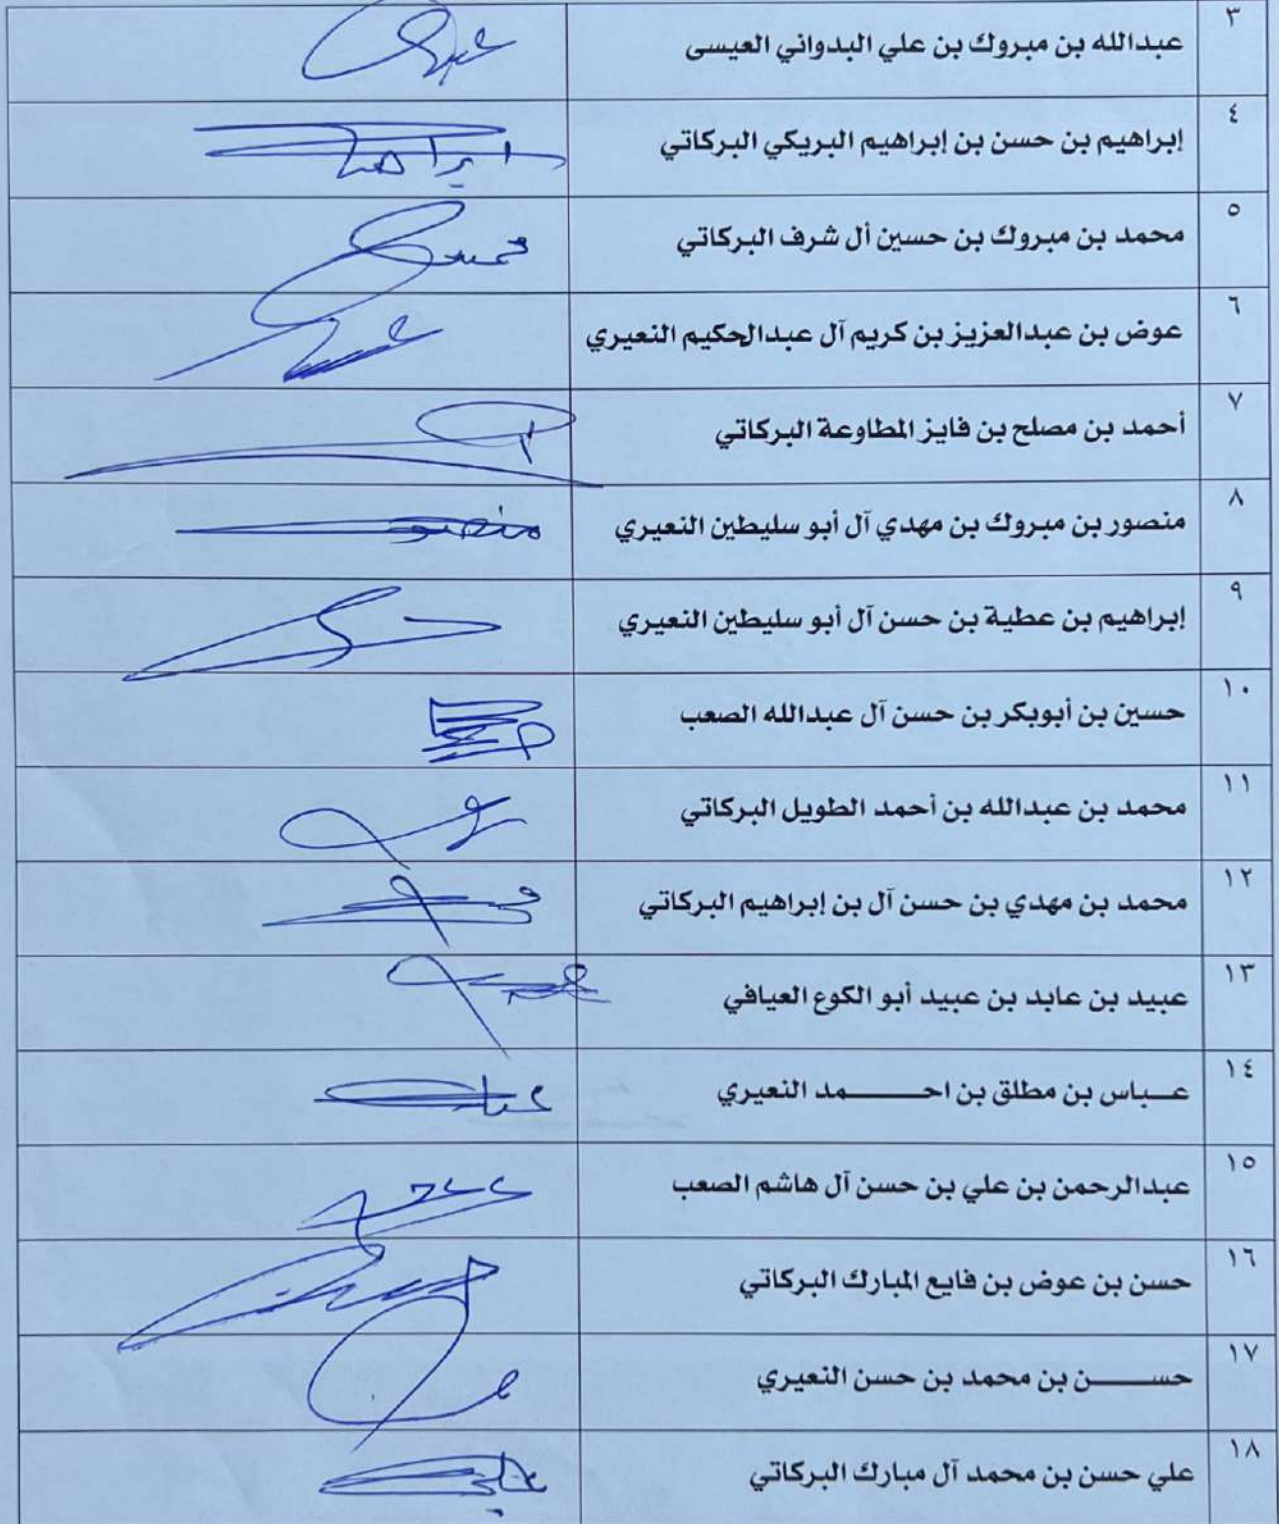 ٣ عبدالله بن مبروك بن علي البدواني العيسى
٤ إبراهيم بن حسن بن إبراهيم البريكي البركاتي
٥ محمد بن مبروك بن حسين أل شرف البركاتي
٦ عوض بن عبدالعزيز بن كريم آل عبدالحكيم النعيري
٧ أحمد بن مصلح بن فايز المطاوعة البركاتي
٨ منصور بن مبروك بن مهدي آل أبو سليطين النعيري
٩ إبراهيم بن عطية بن حسن آل أبو سليطين النعيري
١٠ حسين بن أبوبكر بن حسن آل عبدالله الصعب
١١ محمد بن عبدالله بن أحمد الطويل البركاتي
١٢ محمد بن مهدي بن حسن آل بن إبراهيم البركاتي
١٣ عبيد بن عابد بن عبيد أبو الكوع العيافي
١٤ عـــباس بن مطلق بن احــــــــمد النعيري
١٥ عبدالرحمن بن علي بن حسن آل هاشم الصعب
١٦ حسن بن عوض بن فايع المبارك البركاتي
١٧ حســــــن بن محمد بن حسن النعيري
١٨ علي حسن بن محمد آل مبارك البركاتي